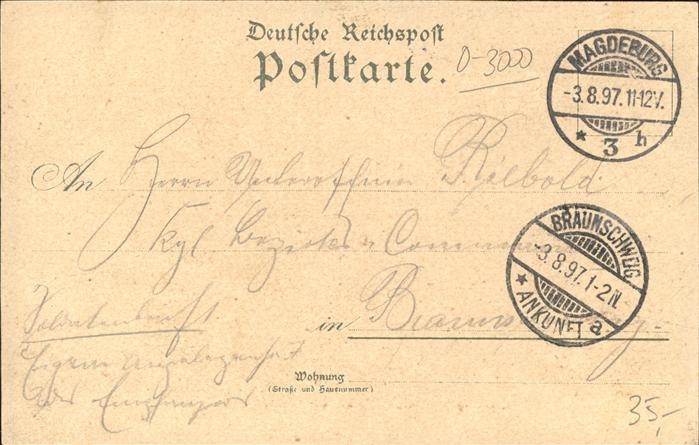 Deutsche Reichspost
Postkarte.
D-3000
MAGDEBURG
-3.8.97.11-12V.
* 3 h
An Herrn Unterofficier Riebold
Kgl. Bezirks Comman
BRAUNSCHWEIG
-3.8.97.1-2N.
* ANKUNFT a
Soldatenbrief
in Braunschweig.
Eigene Angelegenheit
des Empfängers
Wohnung
(Straße und Hausnummer)
35,-